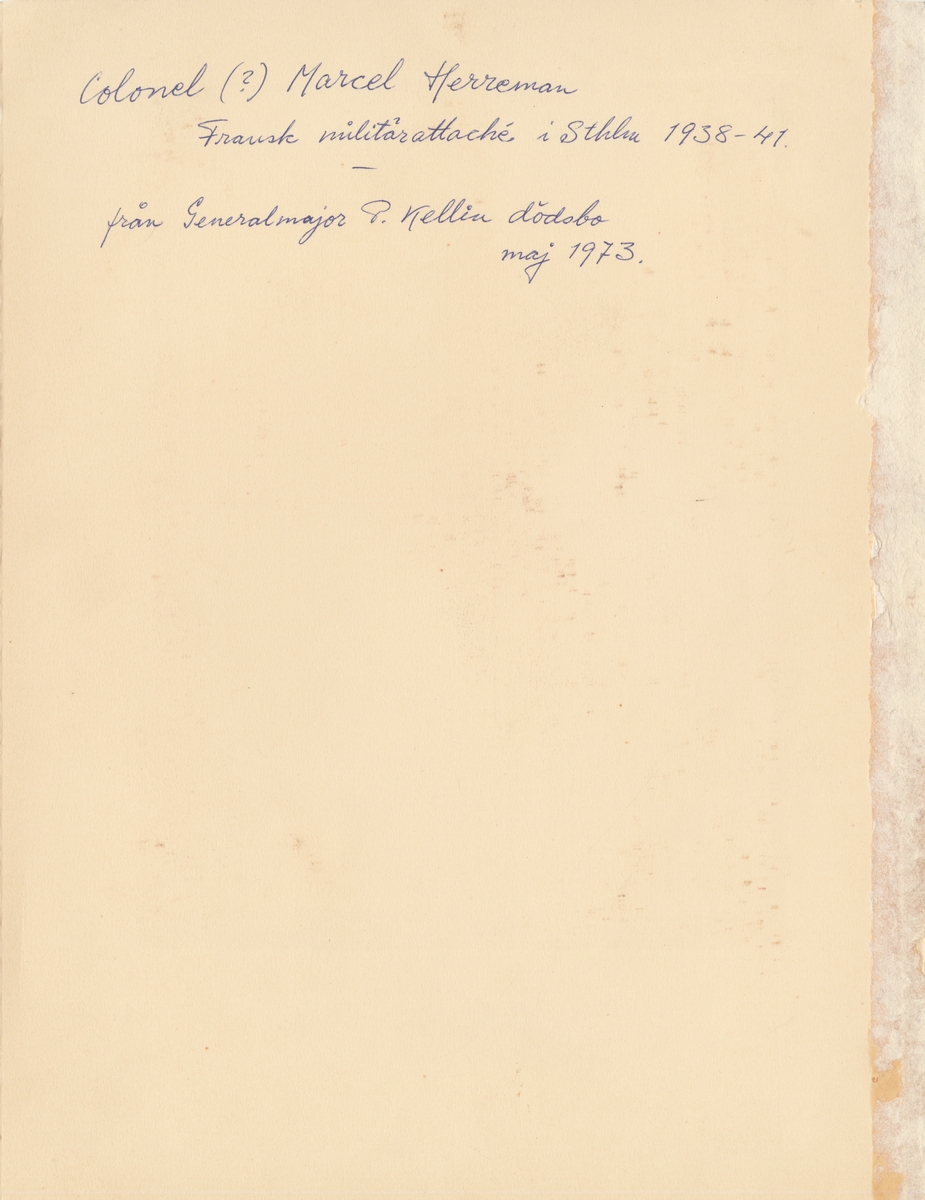 Colonel (?) Marcel Herreman
Fransk militärattaché i Sthlm 1938-41.
—
från Generalmajor P. Kellin dödsbo
maj 1973.